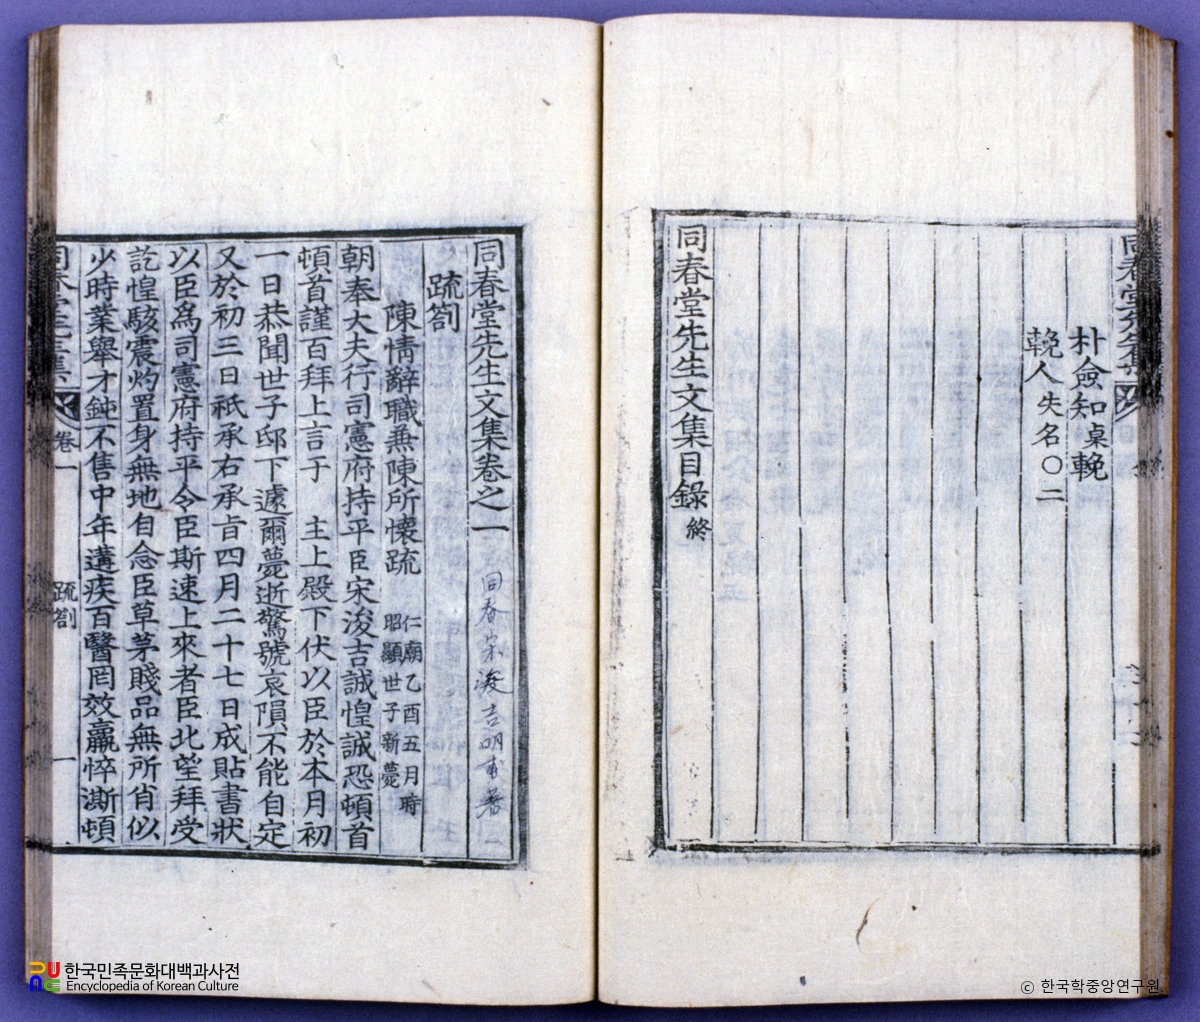 同春堂先生文集
朴僉知㝎輓
輓人失名〇二
同春堂先生文集目錄終
同春堂先生文集卷之一
同春宋浚吉明甫著
疏箚
陳情辭職兼陳所懷疏 仁廟乙酉五月時昭顯世子新薨
朝奉大夫行司憲府持平臣宋浚吉誠惶誠恐頓首
頓首謹百拜上言于 主上殿下伏以臣於本月初
一日恭聞世子邸下遽爾薨逝驚號哀隕不能自定
又於初三日祇承右承旨四月二十七日成貼書狀
以臣爲司憲府持平令臣斯速上來者臣北望拜受
訖惶駭震灼置身無地自念臣草茅賤品無所肖似
少時業擧才鈍不售中年遘疾百醫罔效羸悴澌頓
同春堂先生集 卷一 疏箚 一
한국민족문화대백과사전
Encyclopedia of Korean Culture
ⓒ 한국학중앙연구원